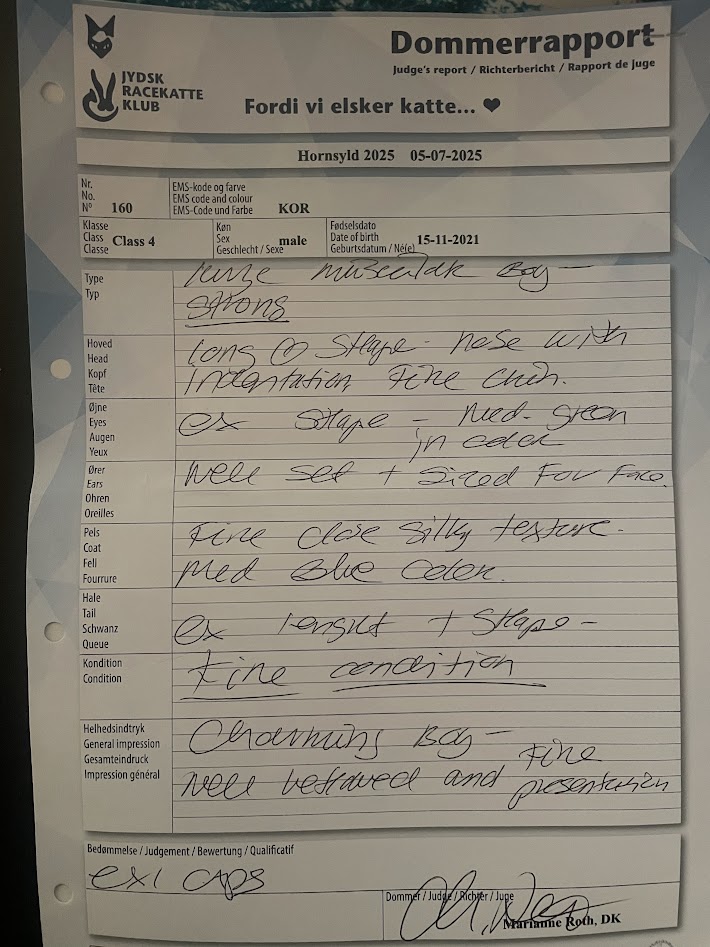 Dommerrapport
Judge's report / Richterbericht / Rapport de juge
JYDSK
RACEKATTE
KLUB
Fordi vi elsker katte... ❤
Hornsyld 2025 05-07-2025
Nr.
No.
N° 160
EMS-kode og farve
EMS code and colour
EMS-Code und Farbe KOR
Klasse
Class Class 4
Classe
Køn
Sex male
Geschlecht / Sexe
Fødselsdato
Date of birth 15-11-2021
Geburtsdatum / Né(e)
Type
Typ
large Boy –
strong
Hoved
Head
Kopf
Tête
long shape - nose with
indentation Fine chin.
Øjne
Eyes
Augen
Yeux
ex shape – med. green
in color
Ører
Ears
Ohren
Oreilles
well set + sized For Face.
Pels
Coat
Fell
Fourrure
Fine close silky texture.
med Blue color.
Hale
Tail
Schwanz
Queue
ex lenght + shape –
Kondition
Condition
Fine condition
Helhedsindtryk
General impression
Gesamteindruck
Impression général
Charming Boy –
well behaved and Fine
presentation
Bedømmelse / Judgement / Bewertung / Qualificatif
ex1 CAPS
Dommer / Judge / Richter / Juge
Marianne Roth, DK